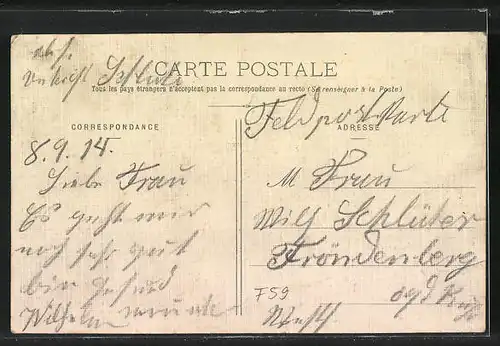 abs.
Schlüter
CARTE POSTALE
Tous les pays étrangers n'acceptent pas la correspondance au recto (Se renseigner à la Poste)
Feldpostkarte
CORRESPONDANCE
ADRESSE
8.9.14.
Liebe Frau
Es geht mir
noch sehr gut
bin gesund
Wilhelm
M Frau
Wilh Schlüter
Fröndenberg
F59
Westf